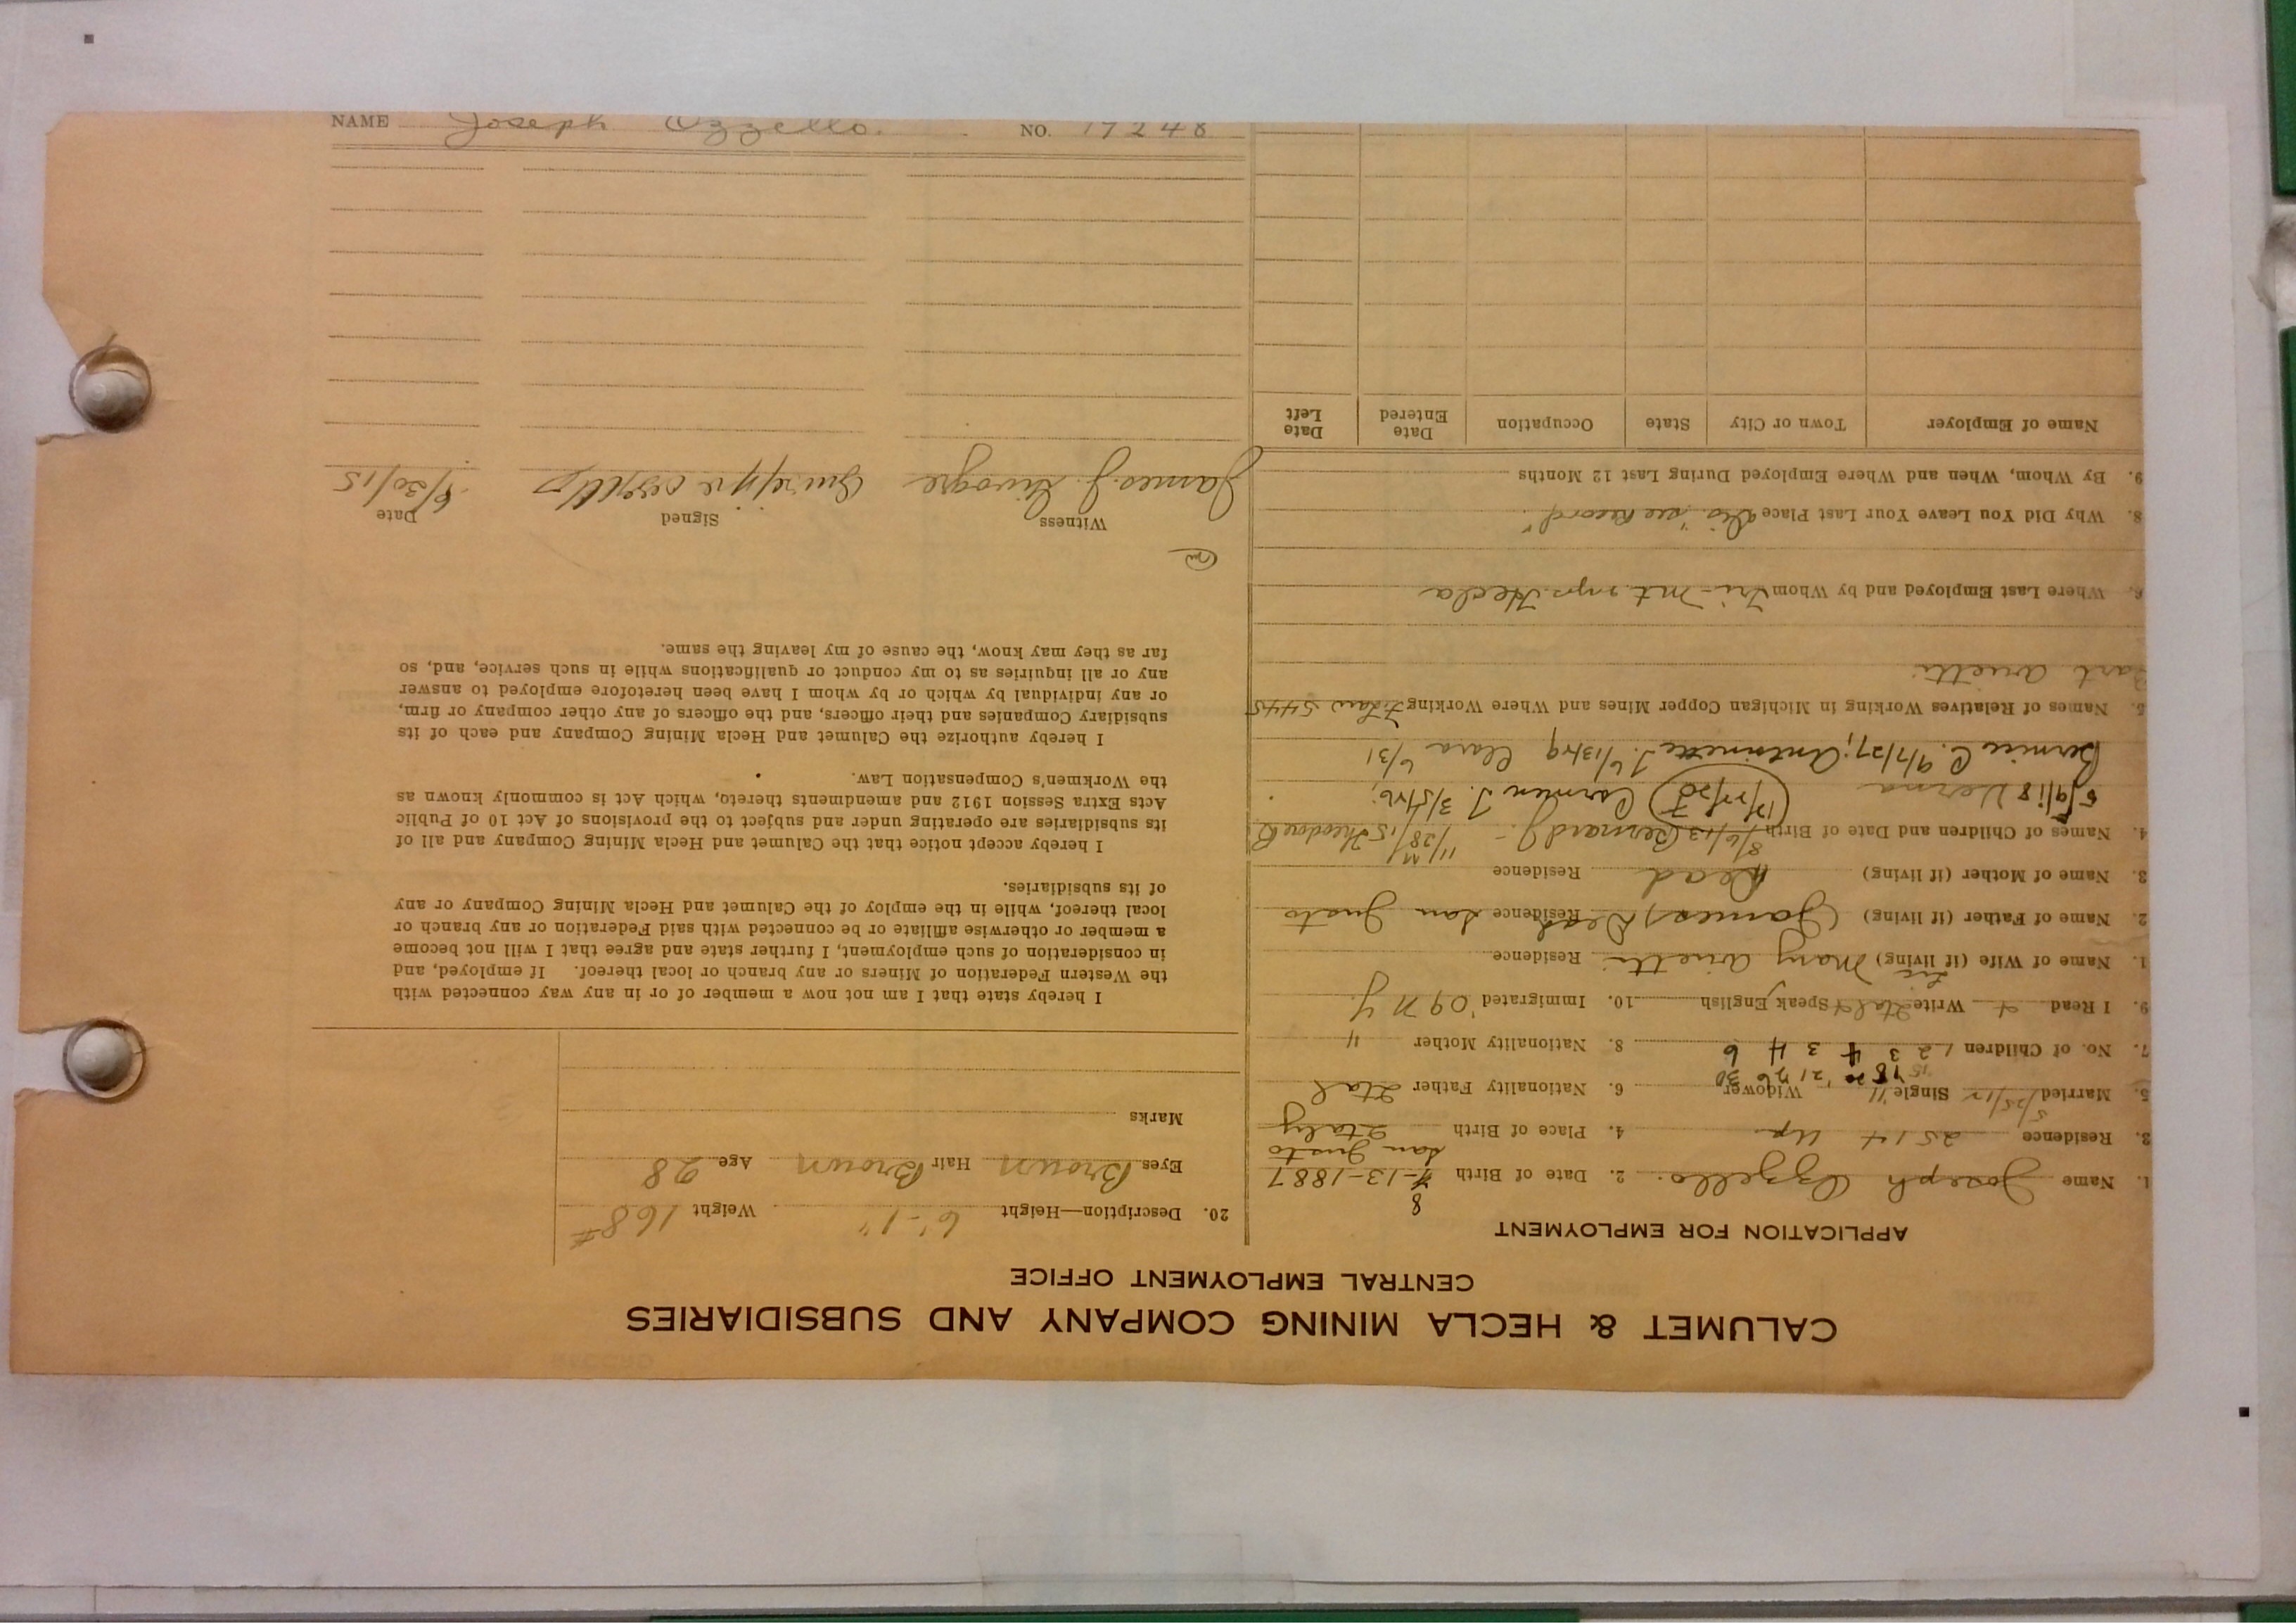 CALUMET & HECLA MINING COMPANY AND SUBSIDIARIES
CENTRAL EMPLOYMENT OFFICE
APPLICATION FOR EMPLOYMENT
1. Name Joseph Ozzello. 2. Date of Birth 4-13-1887
8
San Giusto
3. Residence 2514 4. Place of Birth Italy
5. Married 5/25/12 Single Widower 6. Nationality Father Ital
15 18 20 '21 26 30
7. No. of Children 1 2 3 4 3 4 6 8. Nationality Mother "
9. I Read + Write Ital + Speak English 10. Immigrated '09 N Y.
1. Name of Wife (if living) Mary Arietti Residence
2. Name of Father (if living) (James) Dead Residence San Giusto
3. Name of Mother (if living) Dead Residence
4. Names of Children and Date of Birth 8/6/13 Bernard J. - 11/28/15 Theodore
5/9/18 Verna 12/22/20 F Carmen J. 3/5/26;
Bernice C. 9/7/27; Antoinette J. 6/13/29 Clara 6/31
5. Names of Relatives Working in Michigan Copper Mines and Where Working F. Law 5445
Bart Arietti
6. Where Last Employed and by Whom Tri-Mt. Hecla
8. Why Did You Leave Your Last Place "see Record"
9. By Whom, When and Where Employed During Last 12 Months
Name of Employer Town or City State Occupation Date Entered Date Left
20. Description—Height 6'-1" Weight 168#
Eyes Brown Hair Brown Age 28
Marks
I hereby state that I am not now a member of or in any way connected with
the Western Federation of Miners or any branch or local thereof. If employed, and
in consideration of such employment, I further state and agree that I will not become
a member or otherwise affiliate or be connected with said Federation or any branch or
local thereof, while in the employ of the Calumet and Hecla Mining Company or any
of its subsidiaries.
I hereby accept notice that the Calumet and Hecla Mining Company and all of
its subsidiaries are operating under and subject to the provisions of Act 10 of Public
Acts Extra Session 1912 and amendments thereto, which Act is commonly known as
the Workmen's Compensation Law.
I hereby authorize the Calumet and Hecla Mining Company and each of its
subsidiary Companies and their officers, and the officers of any other company or firm,
or any individual by which or by whom I have been heretofore employed to answer
any or all inquiries as to my conduct or qualifications while in such service, and, so
far as they may know, the cause of my leaving the same.
Witness Signed Date
James J. Giuseppe Ozzello /30/15
NAME Joseph Ozzello. NO. 17248